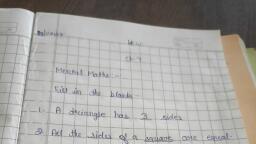 H.W
Ch-7
Mental Maths :-
Fill in the blanks
1. A triangle has 3 sides
2. All the sides of a square are equal.